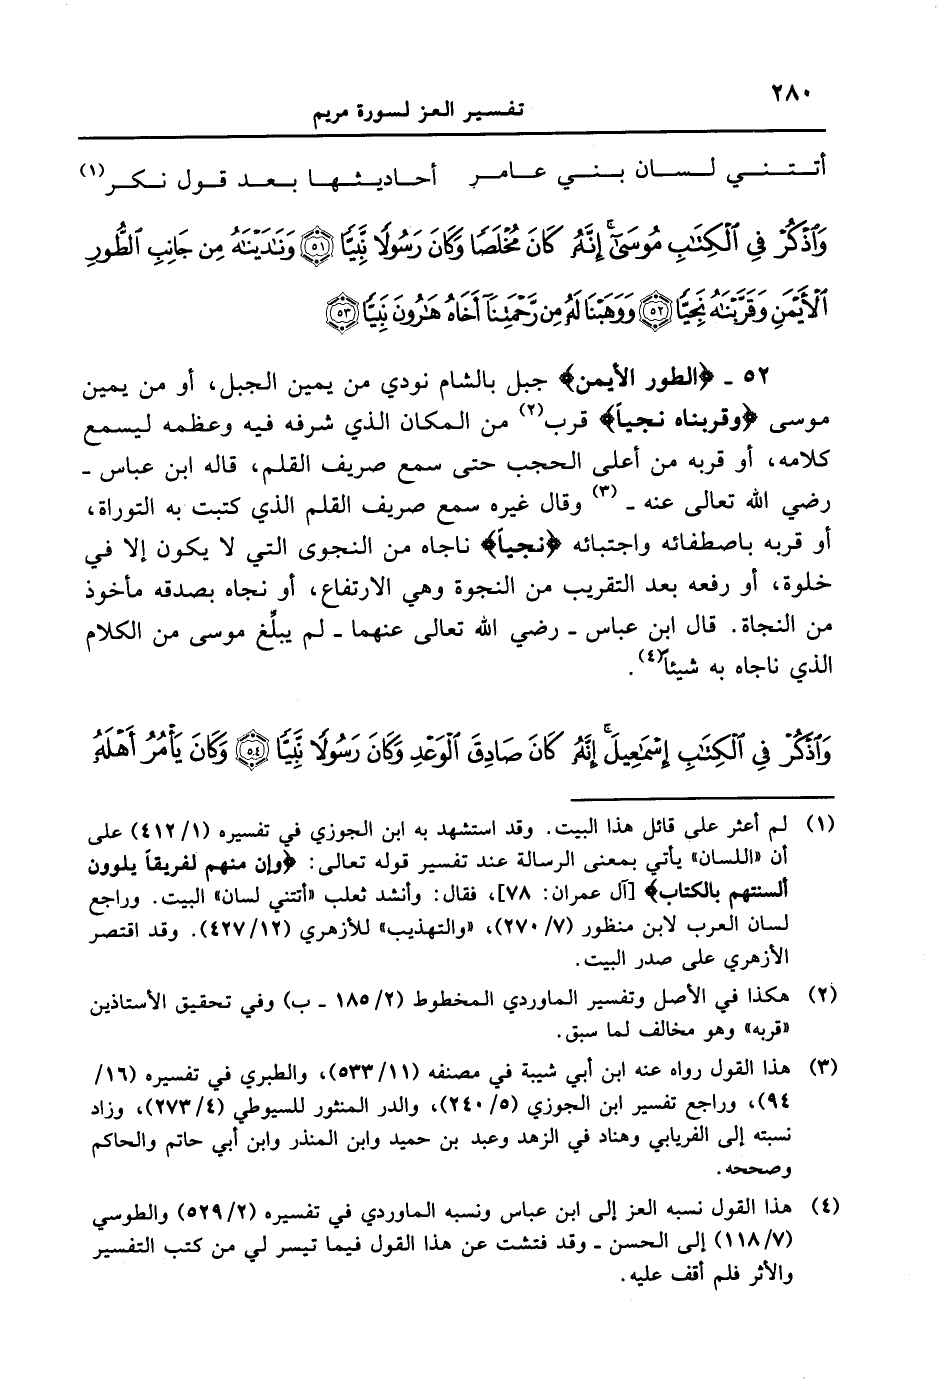 ٢٨٠
تفسير العز لسورة مريم
أتتني لسان بني عامر أحاديثها بعد قول نكر(١)
وَٱذۡكُرۡ فِي ٱلۡكِتَٰبِ مُوسَىٰٓۚ إِنَّهُۥ كَانَ مُخۡلَصٗا وَكَانَ رَسُولٗا نَّبِيّٗا ٥١ وَنَٰدَيۡنَٰهُ مِن جَانِبِ ٱلطُّورِ
ٱلۡأَيۡمَنِ وَقَرَّبۡنَٰهُ نَجِيّٗا ٥٢ وَوَهَبۡنَا لَهُۥ مِن رَّحۡمَتِنَآ أَخَاهُ هَٰرُونَ نَبِيّٗا ٥٣
٥٢ ـ ﴿الطور الأيمن﴾ جبل بالشام نودي من يمين الجبل، أو من يمين
موسى ﴿وقربناه نجياً﴾ قرب(٢) من المكان الذي شرفه فيه وعظمه ليسمع
كلامه، أو قربه من أعلى الحجب حتى سمع صريف القلم، قاله ابن عباس ـ
رضي الله تعالى عنه ـ (٣) وقال غيره سمع صريف القلم الذي كتبت به التوراة،
أو قربه باصطفائه واجتبائه ﴿نجياً﴾ ناجاه من النجوى التي لا يكون إلا في
خلوة، أو رفعه بعد التقريب من النجوة وهي الارتفاع، أو نجاه بصدقه مأخوذ
من النجاة. قال ابن عباس ـ رضي الله تعالى عنهما ـ لم يبلِّغ موسى من الكلام
الذي ناجاه به شيئاً(٤).
وَٱذۡكُرۡ فِي ٱلۡكِتَٰبِ إِسۡمَٰعِيلَۚ إِنَّهُۥ كَانَ صَادِقَ ٱلۡوَعۡدِ وَكَانَ رَسُولٗا نَّبِيّٗا ٥٤ وَكَانَ يَأۡمُرُ أَهۡلَهُۥ
(١) لم أعثر على قائل هذا البيت. وقد استشهد به ابن الجوزي في تفسيره (١/ ٤١٢) على
أن «اللسان» يأتي بمعنى الرسالة عند تفسير قوله تعالى: ﴿وإن منهم لفريقاً يلوون
ألسنتهم بالكتاب﴾ [آل عمران: ٧٨]، فقال: وأنشد ثعلب «أتتني لسان» البيت. وراجع
لسان العرب لابن منظور (٧/ ٢٧٠)، «والتهذيب» للأزهري (١٢/ ٤٢٧). وقد اقتصر
الأزهري على صدر البيت.
(٢) هكذا في الأصل وتفسير الماوردي المخطوط (٢/ ١٨٥ ـ ب) وفي تحقيق الأستاذين
«قربه» وهو مخالف لما سبق.
(٣) هذا القول رواه عنه ابن أبي شيبة في مصنفه (١١/ ٥٣٣)، والطبري في تفسيره (١٦/
٩٤)، وراجع تفسير ابن الجوزي (٥/ ٢٤٠)، والدر المنثور للسيوطي (٤/ ٢٧٣)، وزاد
نسبته إلى الفريابي وهناد في الزهد وعبد بن حميد وابن المنذر وابن أبي حاتم والحاكم
وصححه.
(٤) هذا القول نسبه العز إلى ابن عباس ونسبه الماوردي في تفسيره (٢/ ٥٢٩) والطوسي
(٧/ ١١٨) إلى الحسن ـ وقد فتشت عن هذا القول فيما تيسر لي من كتب التفسير
والأثر فلم أقف عليه.